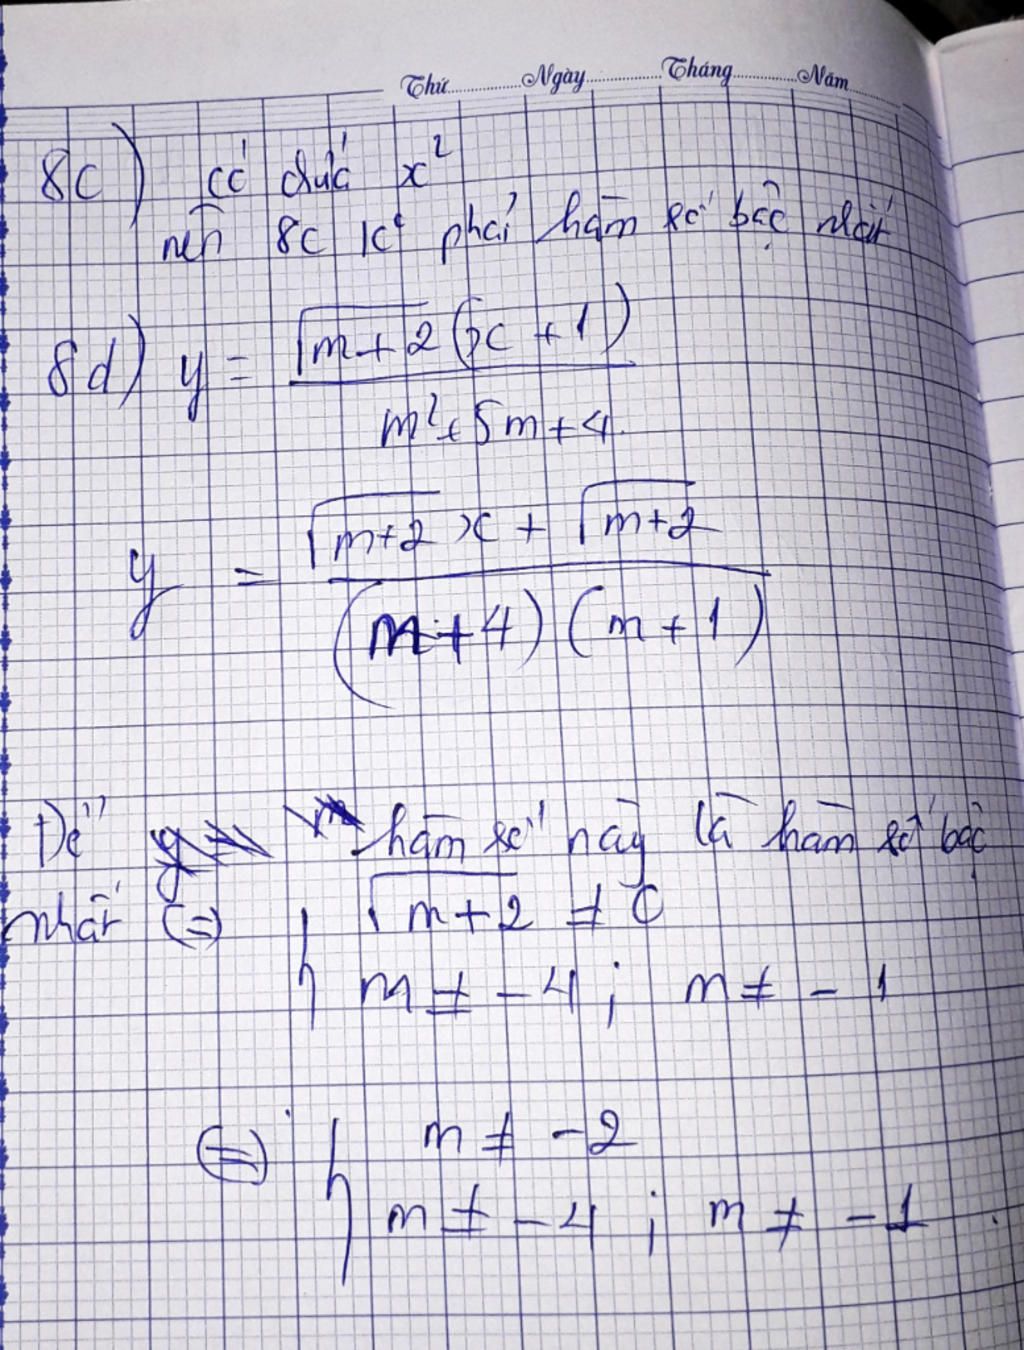 Thứ............Ngày............Tháng............Năm............
8c) có chứa x²
nên 8c k° phải hàm số bậc nhất
8d) y = √(m+2) (x + 1) / m² + 5m + 4
y = √(m+2) x + √(m+2) / (m + 4) (m + 1)
Để hàm số này là hàm số bậc
nhất (=) { √(m+2) ≠ 0
m ≠ - 4 ; m ≠ - 1
(=) { m ≠ - 2
m ≠ - 4 ; m ≠ - 1